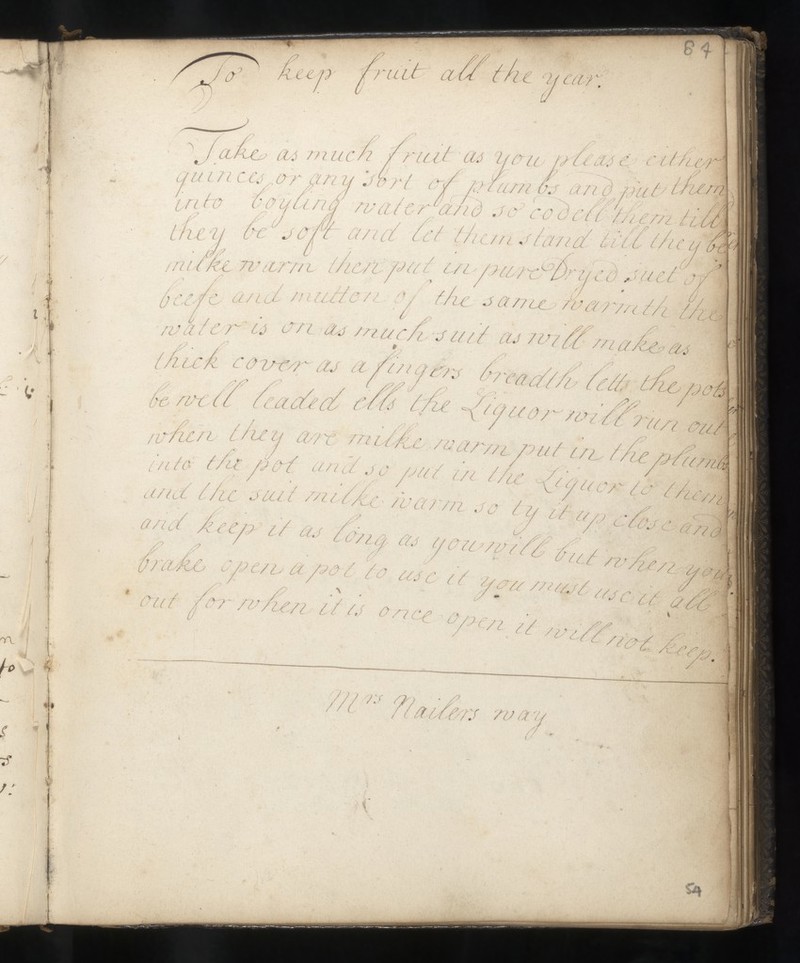 84
To keep fruit all the year.
Take as much fruit as you please either
quinces or any sort of plumbs and put them
into boyling water and so codell them till
they be soft and let them stand till they be
milke warm then put in pure Dryed suet of
beefe and mutton of the same warmth the
water is on as much suit as will make as
thick cover as a fingers breadth letts the pots
be well leaded ells the Liquor will run out
when they are milke warm put in the plumbs
into the pot and so put in the Liquor to them
and the suit milke warm so ty it up close and
and keep it as long as you will but when you
brake open a pot to use it you must use it all
out for when it is once open it will not keep.
Mrs Nailers way
54